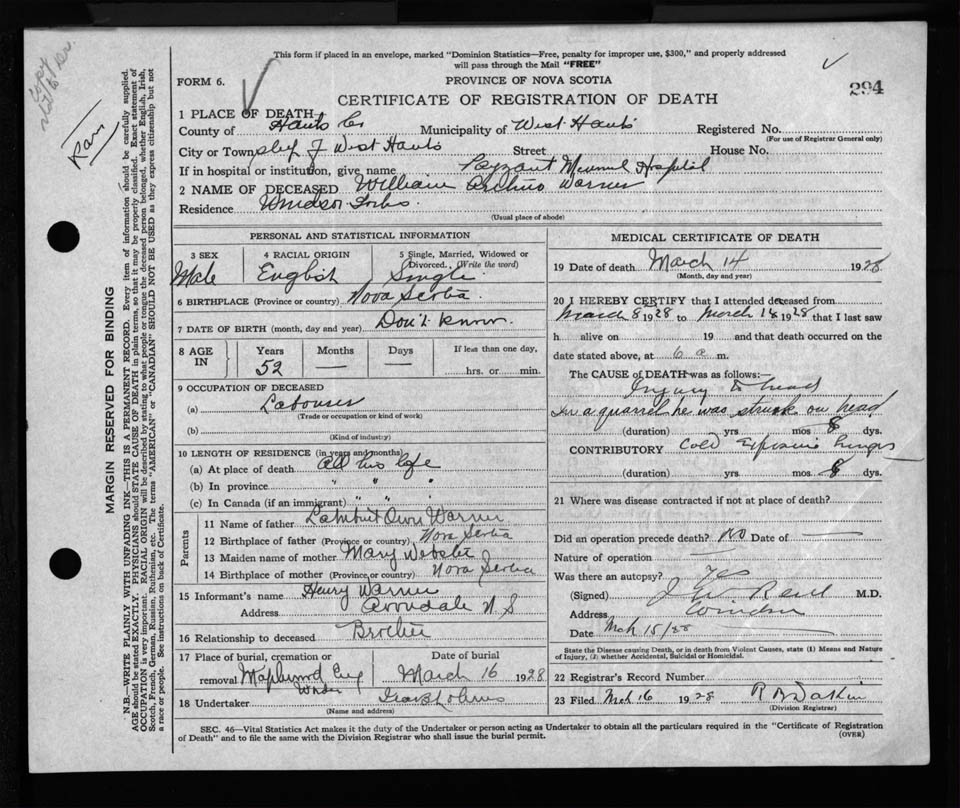 This form if placed in an envelope, marked "Dominion Statistics—Free, penalty for improper use, $300," and properly addressed
will pass through the Mail "FREE"
FORM 6.
PROVINCE OF NOVA SCOTIA
294
CERTIFICATE OF REGISTRATION OF DEATH
1 PLACE OF DEATH
County of Hants Co Municipality of West Hants Registered No.
(For use of Registrar General only)
City or Town of West Hants Street House No.
If in hospital or institution, give name Payzant Hospital
2 NAME OF DECEASED William Arthur Warner
Residence Windsor Forks
(Usual place of abode)
PERSONAL AND STATISTICAL INFORMATION
3 SEX 4 RACIAL ORIGIN 5 Single, Married, Widowed or Divorced, (Write the word)
Male English Single
6 BIRTHPLACE (Province or country) Nova Scotia
7 DATE OF BIRTH (month, day and year) Don't know
8 AGE IN Years Months Days If less than one day,
52 — — hrs. or min.
9 OCCUPATION OF DECEASED
(a) Labourer
(Trade or occupation or kind of work)
(b)
(Kind of industry)
10 LENGTH OF RESIDENCE (in years and months)
(a) At place of death All his life
(b) In province " " "
(c) In Canada (if an immigrant) " "
Parents
11 Name of father Lambert Owen Warner
12 Birthplace of father (Province or country) Nova Scotia
13 Maiden name of mother Mary Webster
14 Birthplace of mother (Province or country) Nova Scotia
15 Informant's name Henry Warner
Address Avondale N.S
16 Relationship to deceased Brother
17 Place of burial, cremation or removal Maplewood Cem Windsor
Date of burial March 16 1928
18 Undertaker
(Name and address)
MEDICAL CERTIFICATE OF DEATH
19 Date of death March 14 1928
(Month, day and year)
20 I HEREBY CERTIFY that I attended deceased from
March 8 1928 to March 14 1928 that I last saw
h alive on 19 and that death occurred on the
date stated above, at 6 a m.
The CAUSE of DEATH was as follows:—
Injury to head
In a quarrel he was struck on head
(duration) yrs mos 8 dys.
CONTRIBUTORY Cold Exposure Lungs
(duration) yrs mos 8 dys.
21 Where was disease contracted if not at place of death?
Did an operation precede death? No Date of —
Nature of operation —
Was there an autopsy? Yes
(Signed) J W Reid M.D.
Address Windsor
Date Mch 15/28
State the Disease causing Death, or in death from Violent Causes, state (1) Means and Nature
of Injury, (2) whether Accidental, Suicidal or Homicidal.
22 Registrar's Record Number
23 Filed Mch 16 1928 R B Dakin
(Division Registrar)
SEC. 46—Vital Statistics Act makes it the duty of the Undertaker or person acting as Undertaker to obtain all the particulars required in the "Certificate of Registration
of Death" and to file the same with the Division Registrar who shall issue the burial permit.
(OVER)
MARGIN RESERVED FOR BINDING
N.B.—WRITE PLAINLY WITH UNFADING INK—THIS IS A PERMANENT RECORD. Every item of information should be carefully supplied.
AGE should be stated EXACTLY. PHYSICIANS should STATE CAUSE OF DEATH in plain terms, so that it may be properly classified. Exact statement of
OCCUPATION is very important. RACIAL ORIGIN will be described by stating to what people or tongue the deceased person belonged, whether English, Irish,
Scotch, French, German, Russian, Ruthenian, etc. The terms "AMERICAN" or "CANADIAN" SHOULD NOT BE USED as they express citizenship but not
a race or people. See instructions on back of Certificate.